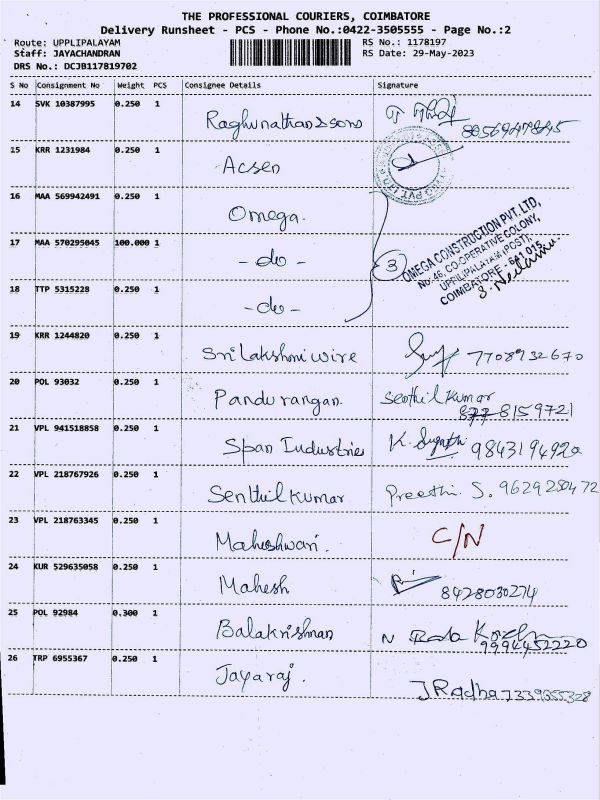 THE PROFESSIONAL COURIERS, COIMBATORE
Delivery Runsheet - PCS - Phone No.:0422-3505555 - Page No.:2
Route: UPPLIPALAYAM
RS No.: 1178197
Staff: JAYACHANDRAN
RS Date: 29-May-2023
DRS No.: DCJB117819702
S No Consignment No Weight PCS Consignee Details Signature
14 SVK 10387995 0.250 1 Raghunathan & sons
15 KRR 1231984 0.250 1 Acsen
16 MAA 569942491 0.250 1 Omega.
17 MAA 570295045 100.000 1 - do - 3
OMEGA CONSTRUCTION PVT. LTD,
No: 46, CO-OPERATIVE COLONY,
UPPILIPALAYAM (POST),
COIMBATORE - 641 015.
18 TTP 5315228 0.250 1 - do -
19 KRR 1244820 0.250 1 Sri Lakshmi wire 7708932670
20 POL 93032 0.250 1 Pandurangan. Senthil Kumar
8159721
21 VPL 941518858 0.250 1 Span Industries K. 9843194920
22 VPL 218767926 0.250 1 Senthil Kumar Preethi. S. 9629250472
23 VPL 218763345 0.250 1 Maheshwari. C/N
24 KUR 529635058 0.250 1 Mahesh 8428030274
25 POL 92984 0.300 1 Balakrishnan N
9994452220
26 TRP 6955367 0.250 1 Jayaraj. J Radha